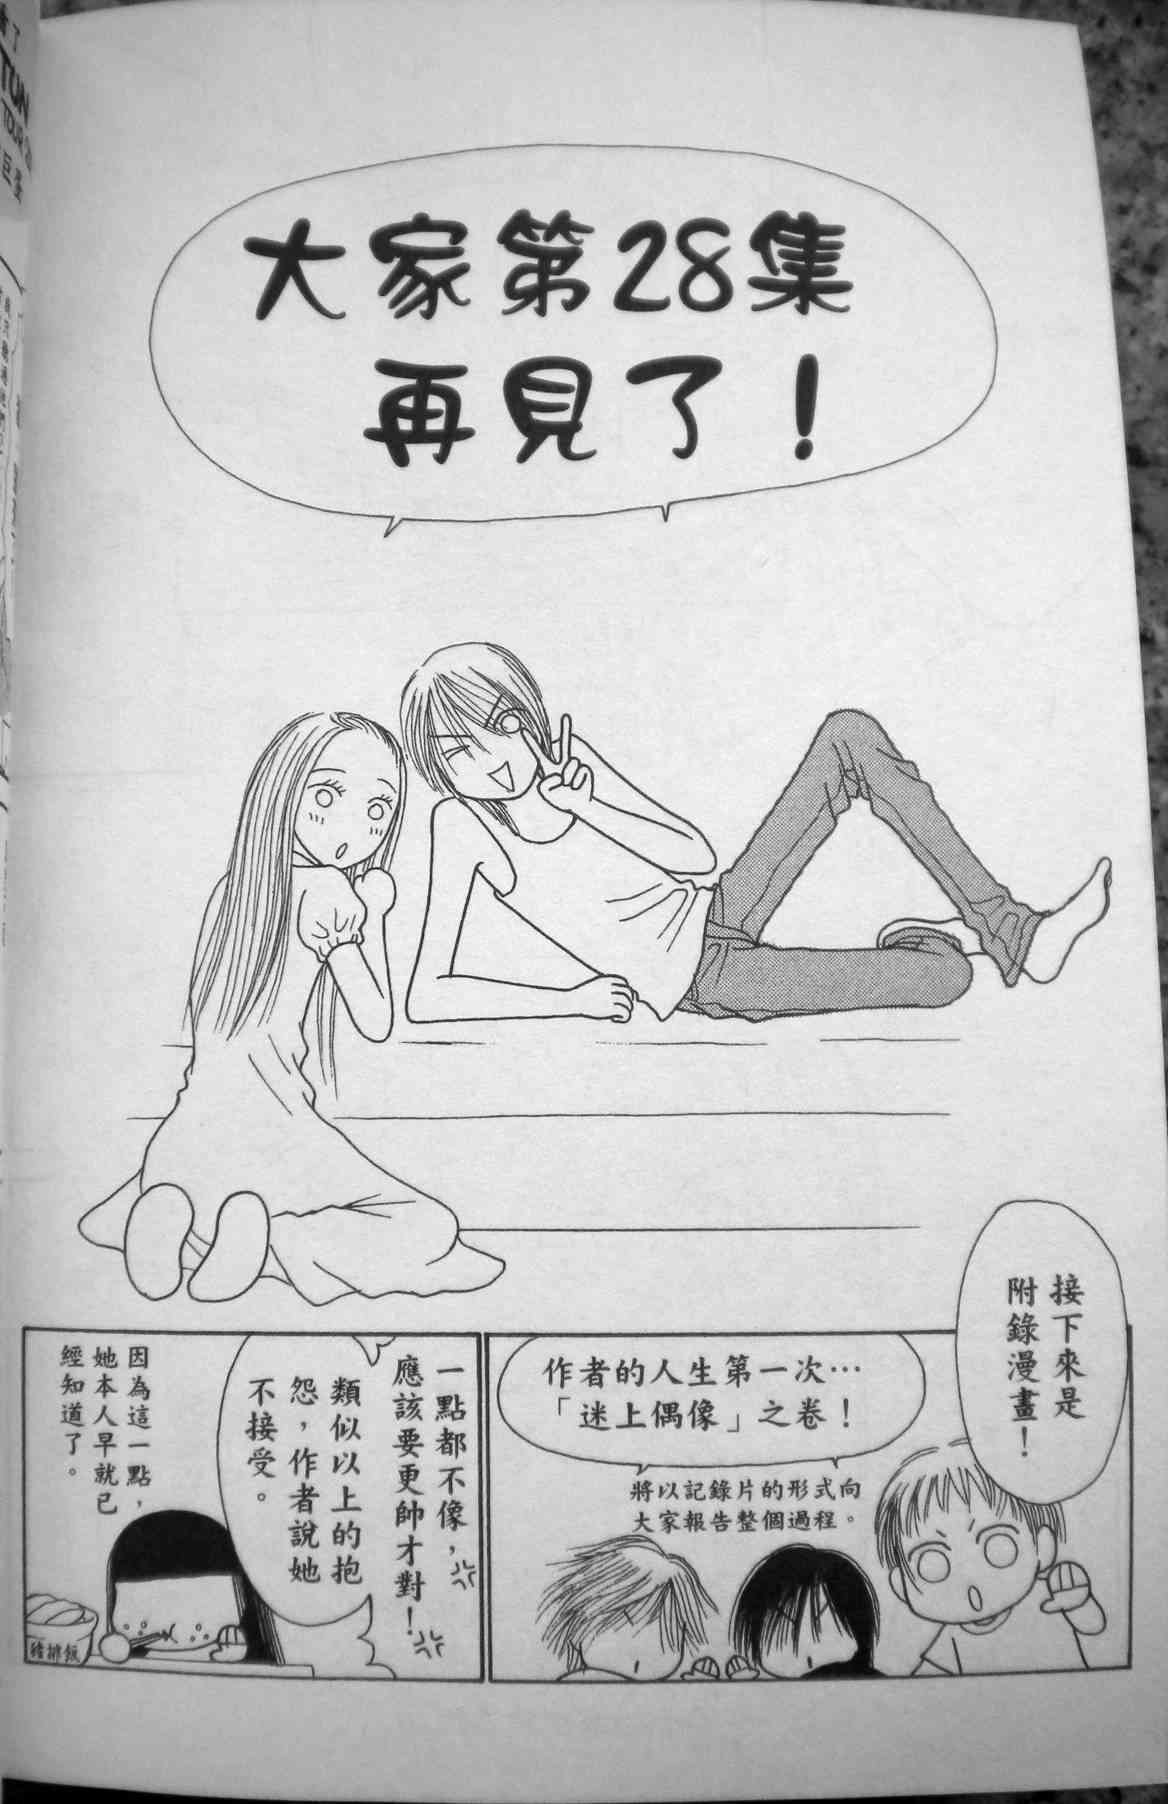 大家第28集
再見了!
接下來是
附錄漫畫!
作者的人生第一次…
「迷上偶像」之卷!
將以記錄片的形式向
大家報告整個過程。
一點都不像,
應該要更帥才對!
類似以上的抱
怨,作者說她
不接受。
因為這一點,
她本人早就已
經知道了。
豬排飯
TOUR
巨蛋